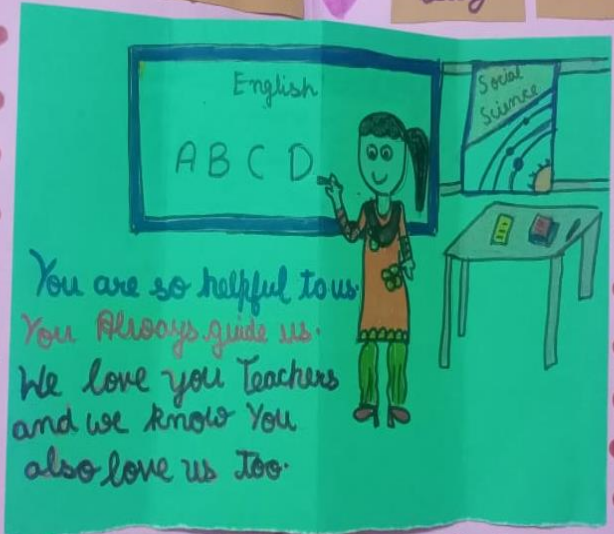 English
A B C D
Social
Science
You are so helpful to us.
You Always guide us.
We love you Teachers
and we know You
also love us Too.